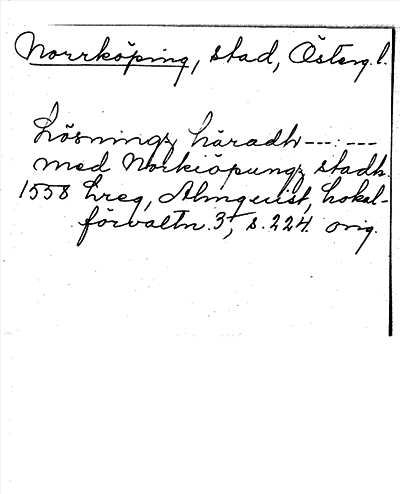 Norrköping, stad, Österg. l.
Lösningz häradh ---:---
med Norkiöpungz stadh.
1558 Lreg, Almquist, Lokal-
förvaltn. 3, s. 224. orig.